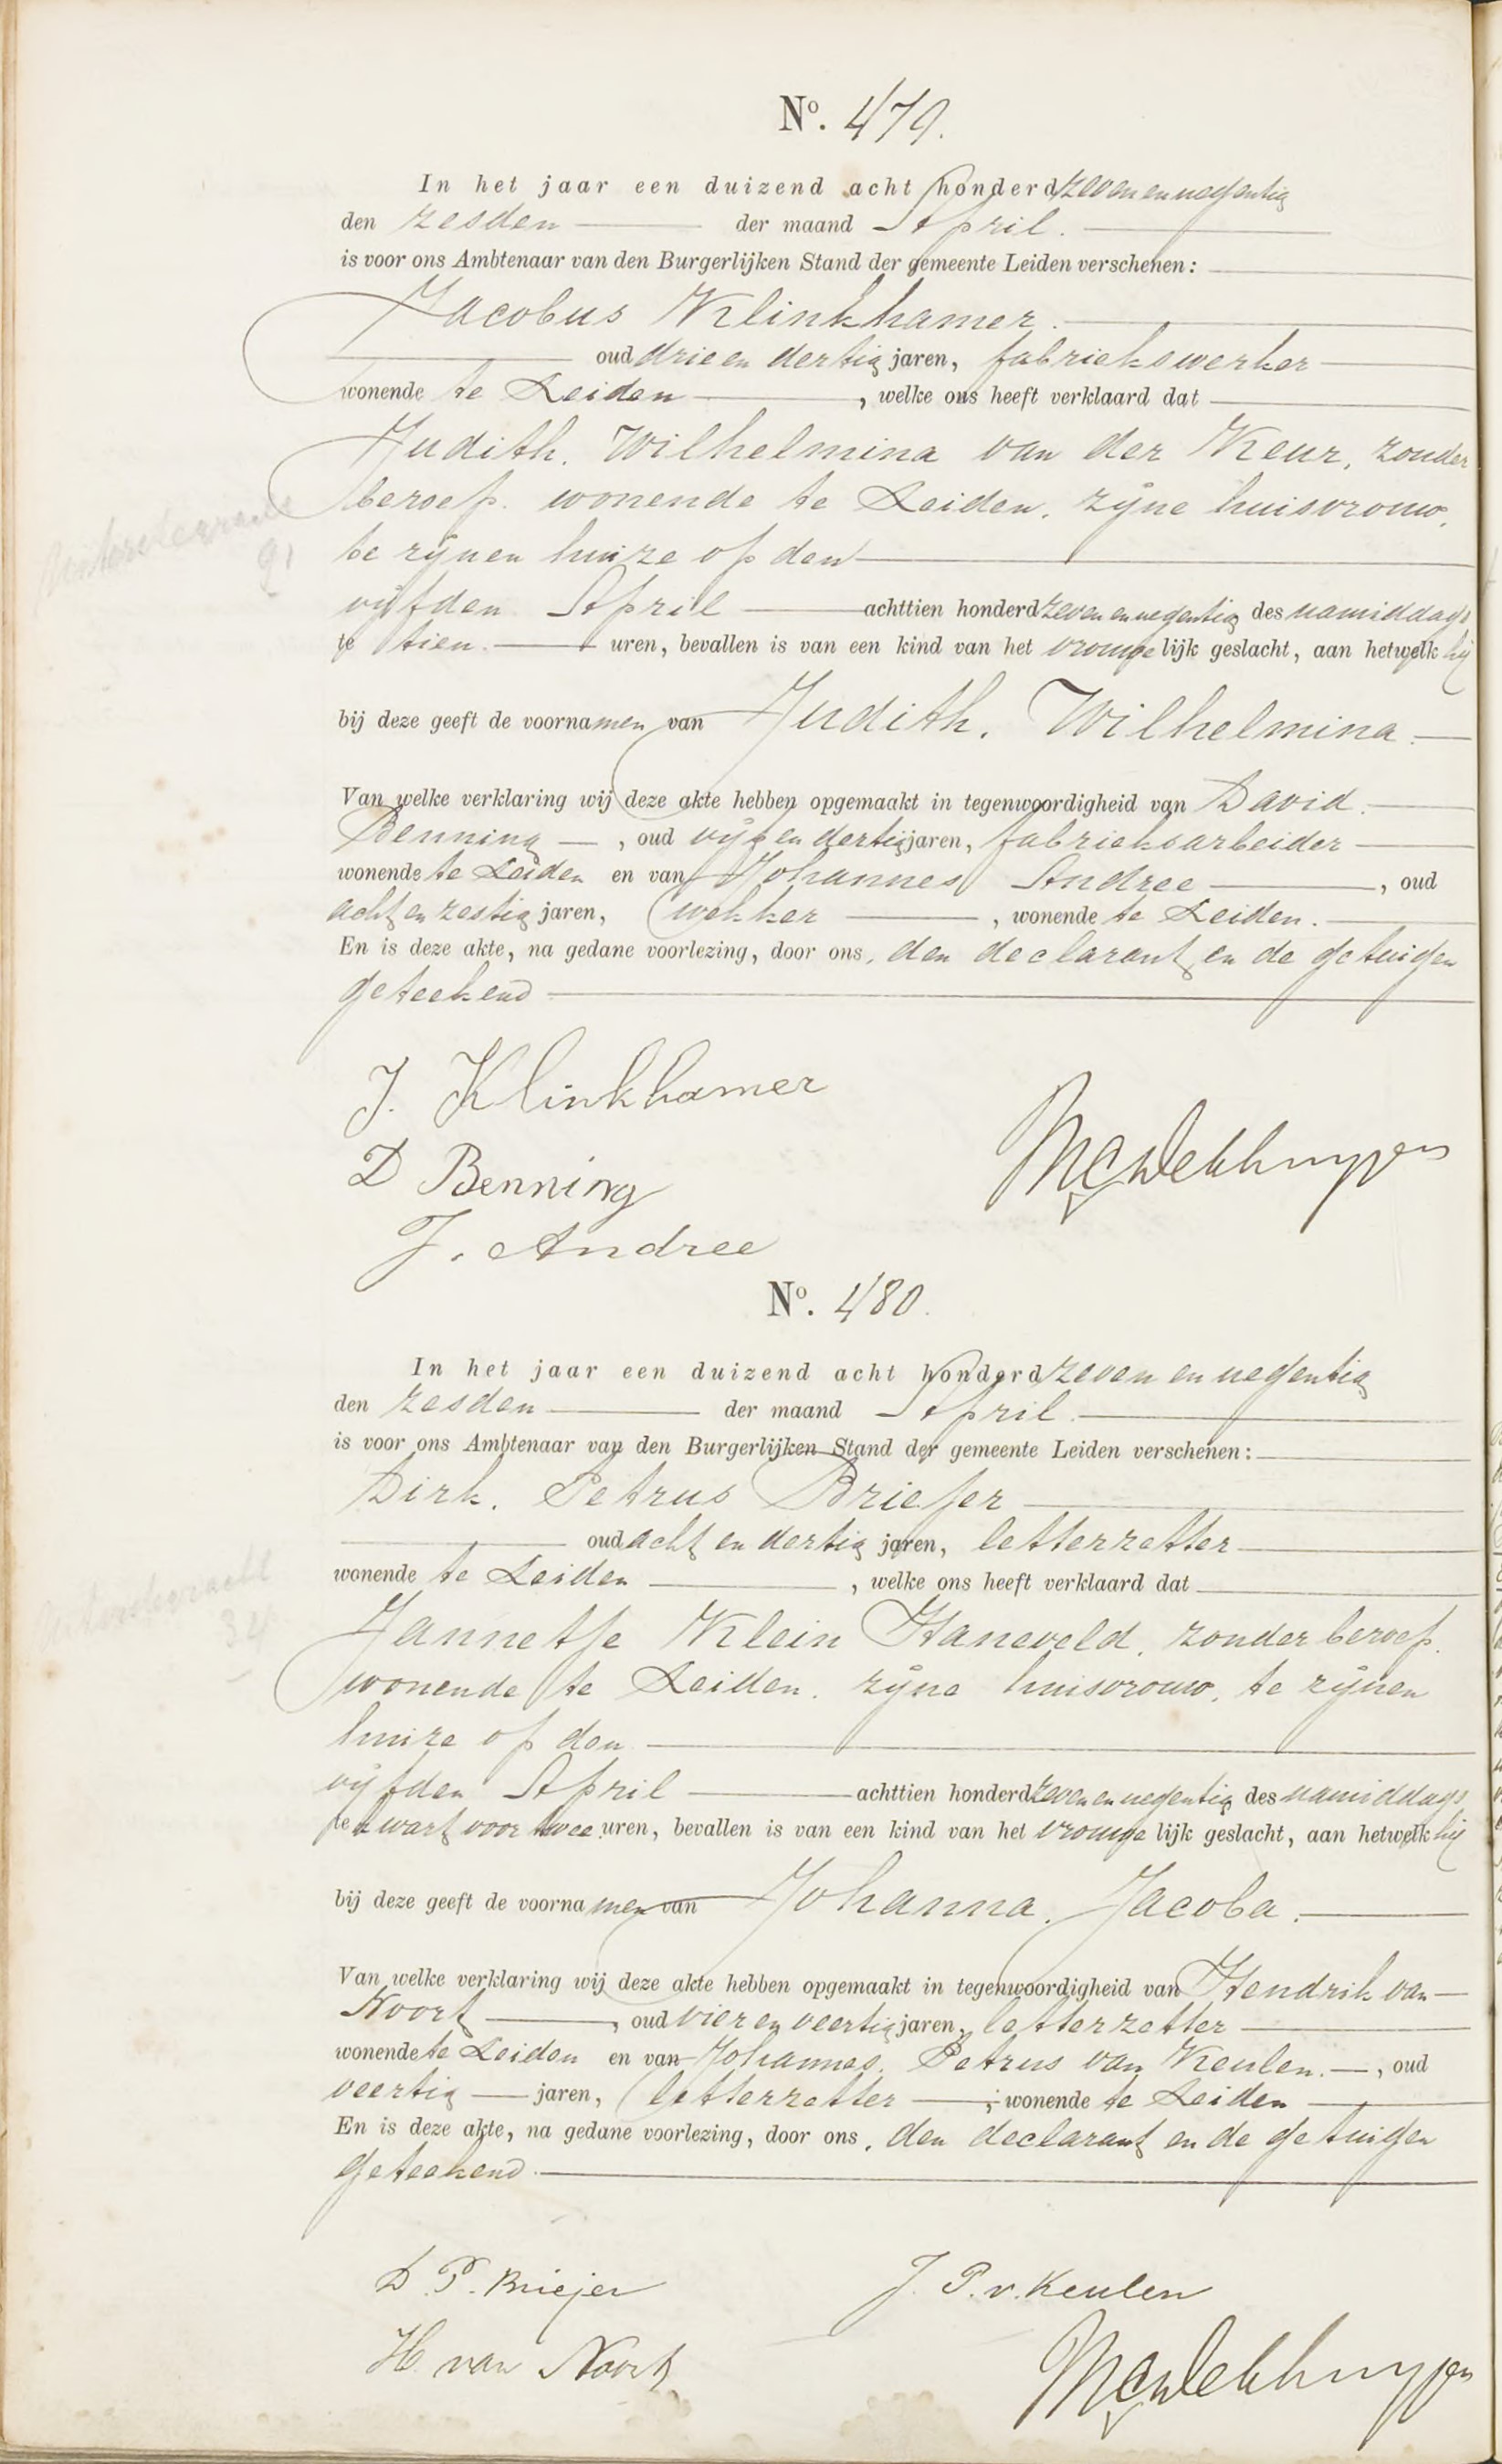 Nº. 479.
In het jaar een duizend acht honderd zeven en negentig
den zesden der maand April.
is voor ons Ambtenaar van den Burgerlijken Stand der gemeente Leiden verschenen:
Jacobus Klinkhamer.
oud drie en dertig jaren, fabriekswerker
wonende te Leiden, welke ons heeft verklaard dat
Judith, Wilhelmina van der Keur, zonder
beroep, wonende te Leiden, zijne huisvrouw,
te zijnen huize op den
vijfden April achttien honderd zeven en negentig des namiddags
te tien uren, bevallen is van een kind van het vrouwelijk geslacht, aan hetwelk hij
bij deze geeft de voornamen van Judith, Wilhelmina.
Van welke verklaring wij deze akte hebben opgemaakt in tegenwoordigheid van David
Benning, oud vijf en dertig jaren, fabrieksarbeider
wonende te Leiden en van Johannes Andree, oud
acht en zestig jaren, wekker, wonende te Leiden.
En is deze akte, na gedane voorlezing, door ons, den declarant en de getuigen
geteekend
J. Klinkhamer
D Benning
J. Andree
Nº. 480.
In het jaar een duizend acht honderd zeven en negentig
den zesden der maand April.
is voor ons Ambtenaar van den Burgerlijken Stand der gemeente Leiden verschenen:
Dirk, Petrus Briejer
oud acht en dertig jaren, letterzetter
wonende te Leiden, welke ons heeft verklaard dat
Jannetje Klein Haneveld, zonder beroep,
wonende te Leiden, zijne huisvrouw, te zijnen
huize op den
vijfden April achttien honderd zeven en negentig des namiddags
te kwart voor twee uren, bevallen is van een kind van het vrouwelijk geslacht, aan hetwelk hij
bij deze geeft de voornamen van Johanna, Jacoba.
Van welke verklaring wij deze akte hebben opgemaakt in tegenwoordigheid van Hendrik van
Noort, oud vier en veertig jaren, letterzetter
wonende te Leiden en van Johannes, Petrus van Keulen, oud
veertig jaren, letterzetter, wonende te Leiden
En is deze akte, na gedane voorlezing, door ons, den declarant en de getuigen
geteekend.
D. P. Briejer
J. P. v. Keulen
H. van Noort
91
34